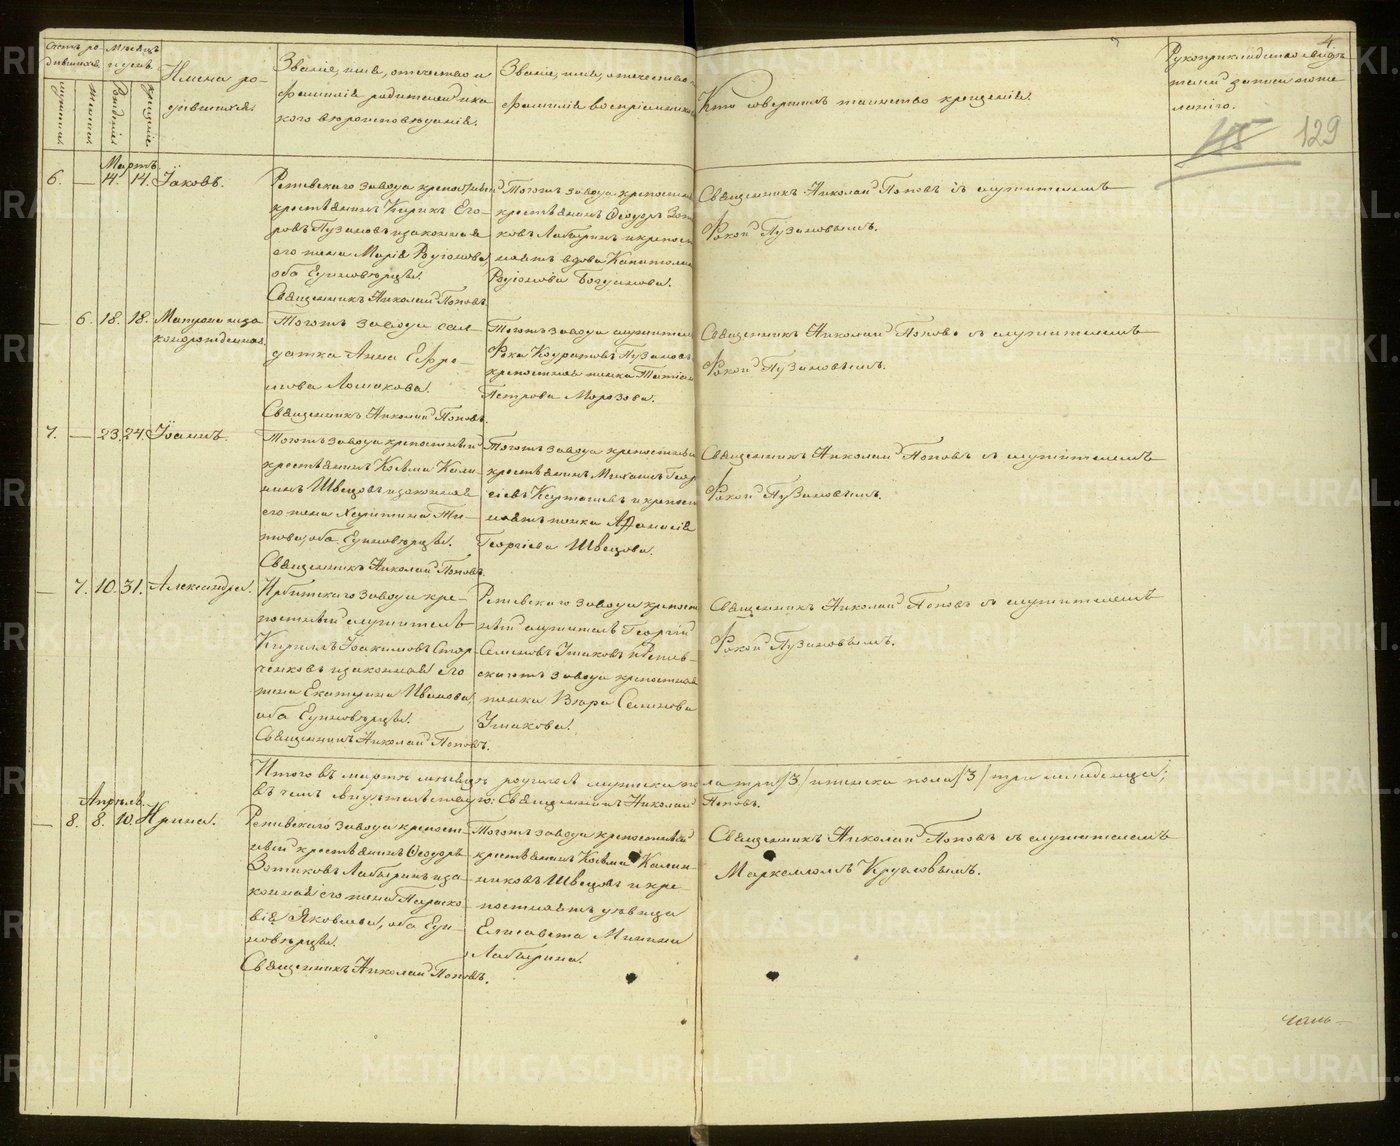 Счетъ ро-
дившихся.
Мѣсяцъ
и день.
мужеска
женска
Рожденія
Крещенія
Имена ро-
дившихся.
Званіе, имя, отчество и
фамилія родителей и ка-
кого вѣроисповѣданія.
Званіе, имя, отчество и
фамилія воспріемниковъ
Кто совершилъ таинство крещенія.
Рукоприкладство свидѣ-
телей записи по же-
ланію.
4
129
Мартъ.
6. — 14. 14. Іаковъ.
Режевскаго завода крепостный
крестьянинъ Кирикъ Его-
ровъ Пузановъ и законная
его жена Марія Родіонова,
оба Единовѣрцы.
Священникъ Николай Поповъ.
Тогожъ завода крепостный
крестьянинъ Ѳеодоръ Зоти-
ковъ Лабыринъ и крепост-
ная вдова Капитолина
Родіонова Богданова.
Священникъ Николай Поповъ съ служителемъ
Фокой Пузановымъ.
— 6. 18. 18. Матрона неза-
коннорожденная.
Тогожъ завода сол-
датка Анна Ефре-
мова Ломакова.
Священникъ Николай Поповъ.
Тогожъ завода служитель
Фока Кодратовъ Пузановъ
крепостная женка Татіана
Петрова Морозова.
Священникъ Николай Поповъ съ служителемъ
Фокой Пузановымъ.
7. — 23. 24. Іоаннъ.
Тогожъ завода крепостный
крестьянинъ Козьма Кали-
нинъ Швецовъ и законная
его жена Харитина Ти-
това, оба Единовѣрцы.
Священникъ Николай Поповъ.
Тогожъ завода крепостный
крестьянинъ Михаилъ Геор-
гіевъ и крепост-
ная женка Афанасія
Георгіева Швецова.
Священникъ Николай Поповъ съ служителемъ
Фокой Пузановымъ.
— 7. 10. 31. Александра.
Ирбитскаго завода кре-
постный служитель
Кириллъ Іоакимовъ Стар-
ченковъ и законная его
жена Екатерина Иванова,
оба Единовѣрцы.
Священникъ Николай Поповъ.
Режевскаго завода крепост-
ный служитель Георгій
Семеновъ Ушаковъ и Режев-
скагожъ завода крепостная
женка Вѣра Семенова
Ушакова.
Священникъ Николай Поповъ съ служителемъ
Фокой Пузановымъ.
Итого въ мартѣ мѣсяцѣ родилось мужеска пола три /3/ и женска пола /3/ три младенца;
въ чемъ и свидѣтельствую: Священникъ Николай Поповъ.
Апрѣль.
— 8. 8. 10. Ирина.
Режевскаго завода крепост-
ный крестьянинъ Ѳеодоръ
Зотиковъ Лабыринъ и за-
конная его жена Параско-
вія Яковлева, оба Еди-
новѣрцы.
Священникъ Николай Поповъ.
Тогожъ завода крепостный
крестьянинъ Козьма Калин-
никовъ Швецовъ и кре-
постная дѣвица
Елисавета Минина
Лабырина.
Священникъ Николай Поповъ съ служителемъ
Маркеломъ Кругловымъ.
METRIKI.GASO-URAL.RU